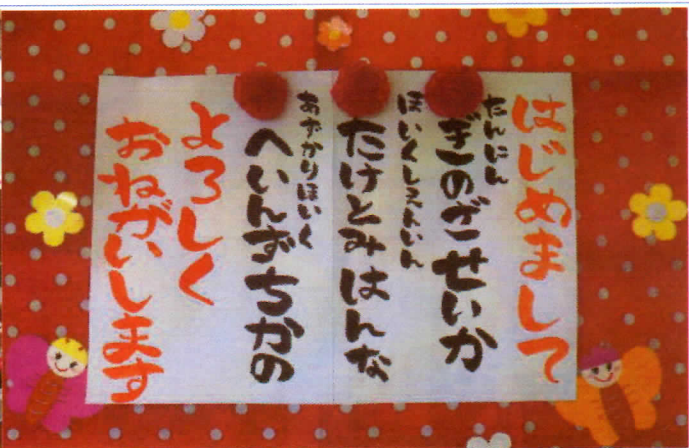 はじめまして
たんにん
ぎのざせいか
ほいくしえんいん
たけとみはんな
あずかりほいく
へいんずちかの
よろしく
おねがいします